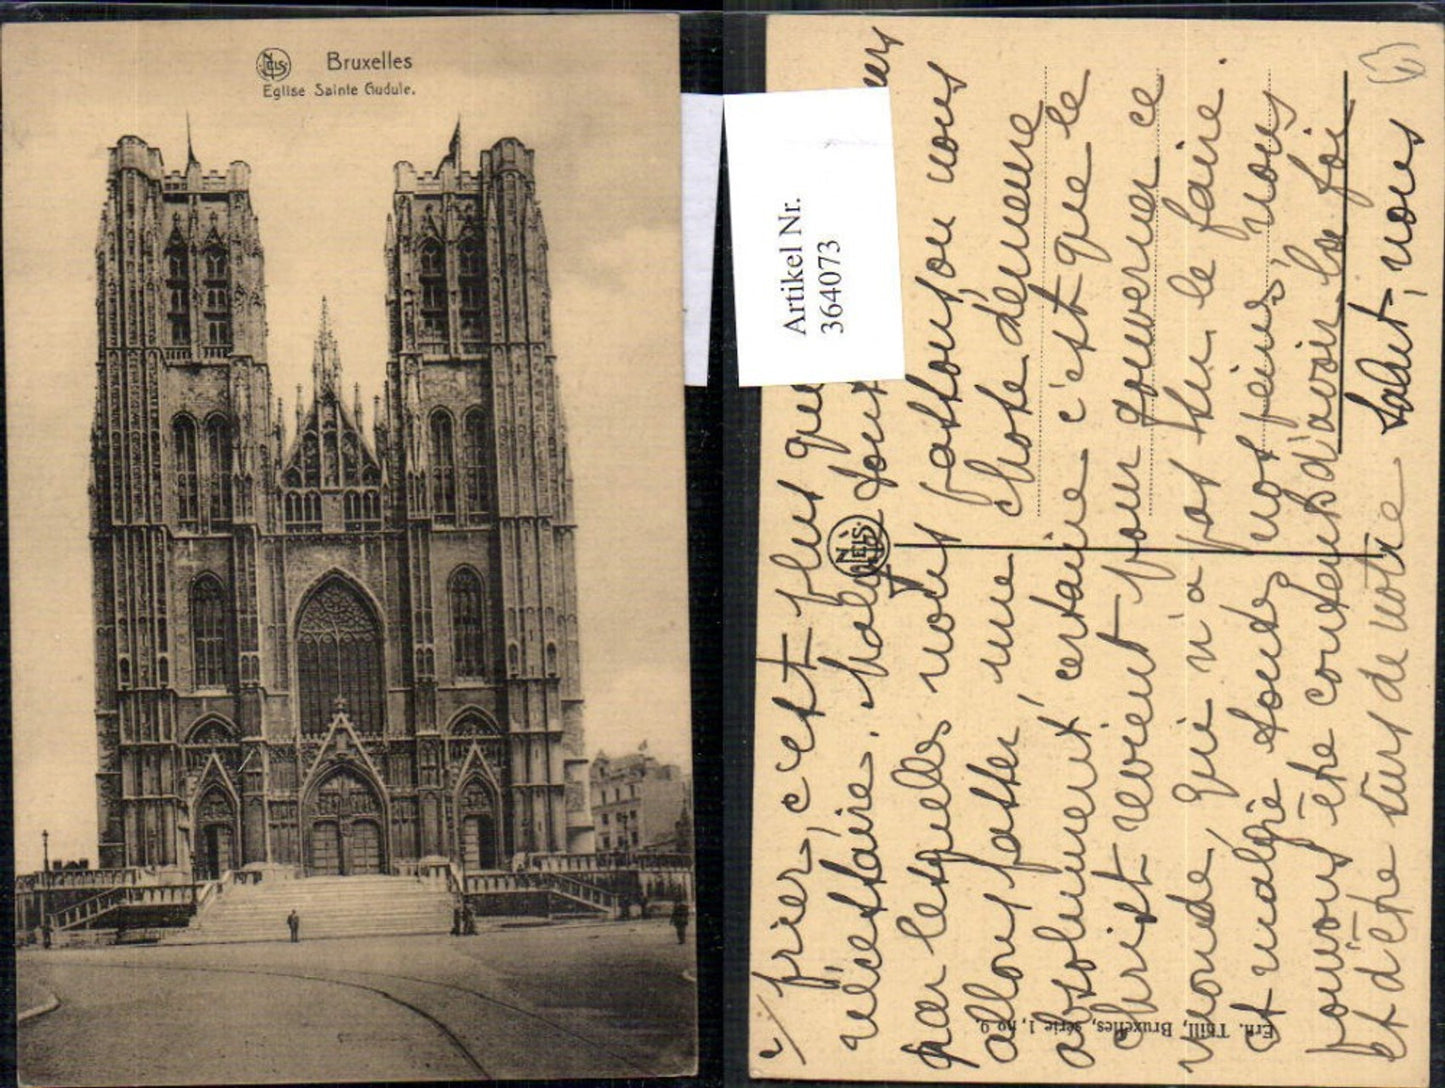 NELS
Bruxelles
Eglise Sainte Gudule.
Artikel Nr.
364073
prier, c'est plus que
nécessaire. Malgré tout
par lesquelles nous passons, ou nous
allons passer, une chose demeure
absolument certaine c'est que le
Christ revient pour gouverner ce
monde, qui n'a pas su le faire.
et malgré toutes nos peines, nous
pouvons être contents d'avoir la foi
et d'être surs de notre salut, nous
NELS
Ern. Thill, Bruxelles, série 1, no 9.